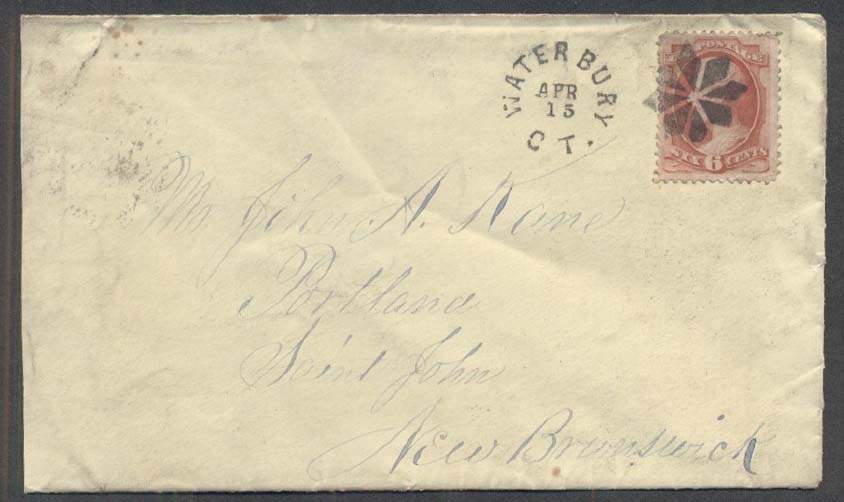 WATERBURY
APR
15
CT.
POSTAGE
SIX 6 CENTS
Mr. John A. Kane
Portland
Saint John
New Brunswick